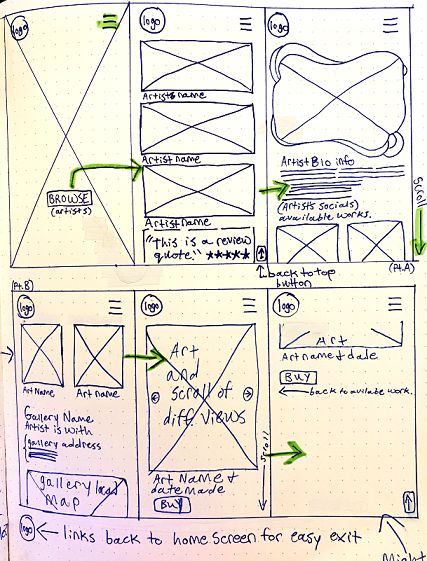 logo
logo
logo
BROWSE
(artists)
Artists name
Artist name
Artist name
"This is a review
quote." ★★★★★
Artist Bio info
(Artists socials)
available works.
Scroll
back to top
button
(Pt.A)
(Pt.B)
logo
logo
logo
Art Name
Art name
Gallery Name
Artist is with
gallery address
gallery
map
Art
and
scroll of
diff. views
Art Name &
date made
BUY
Scroll
Art
Art name & date
BUY
back to availble work.
logo ← links back to home screen for easy exit
Might